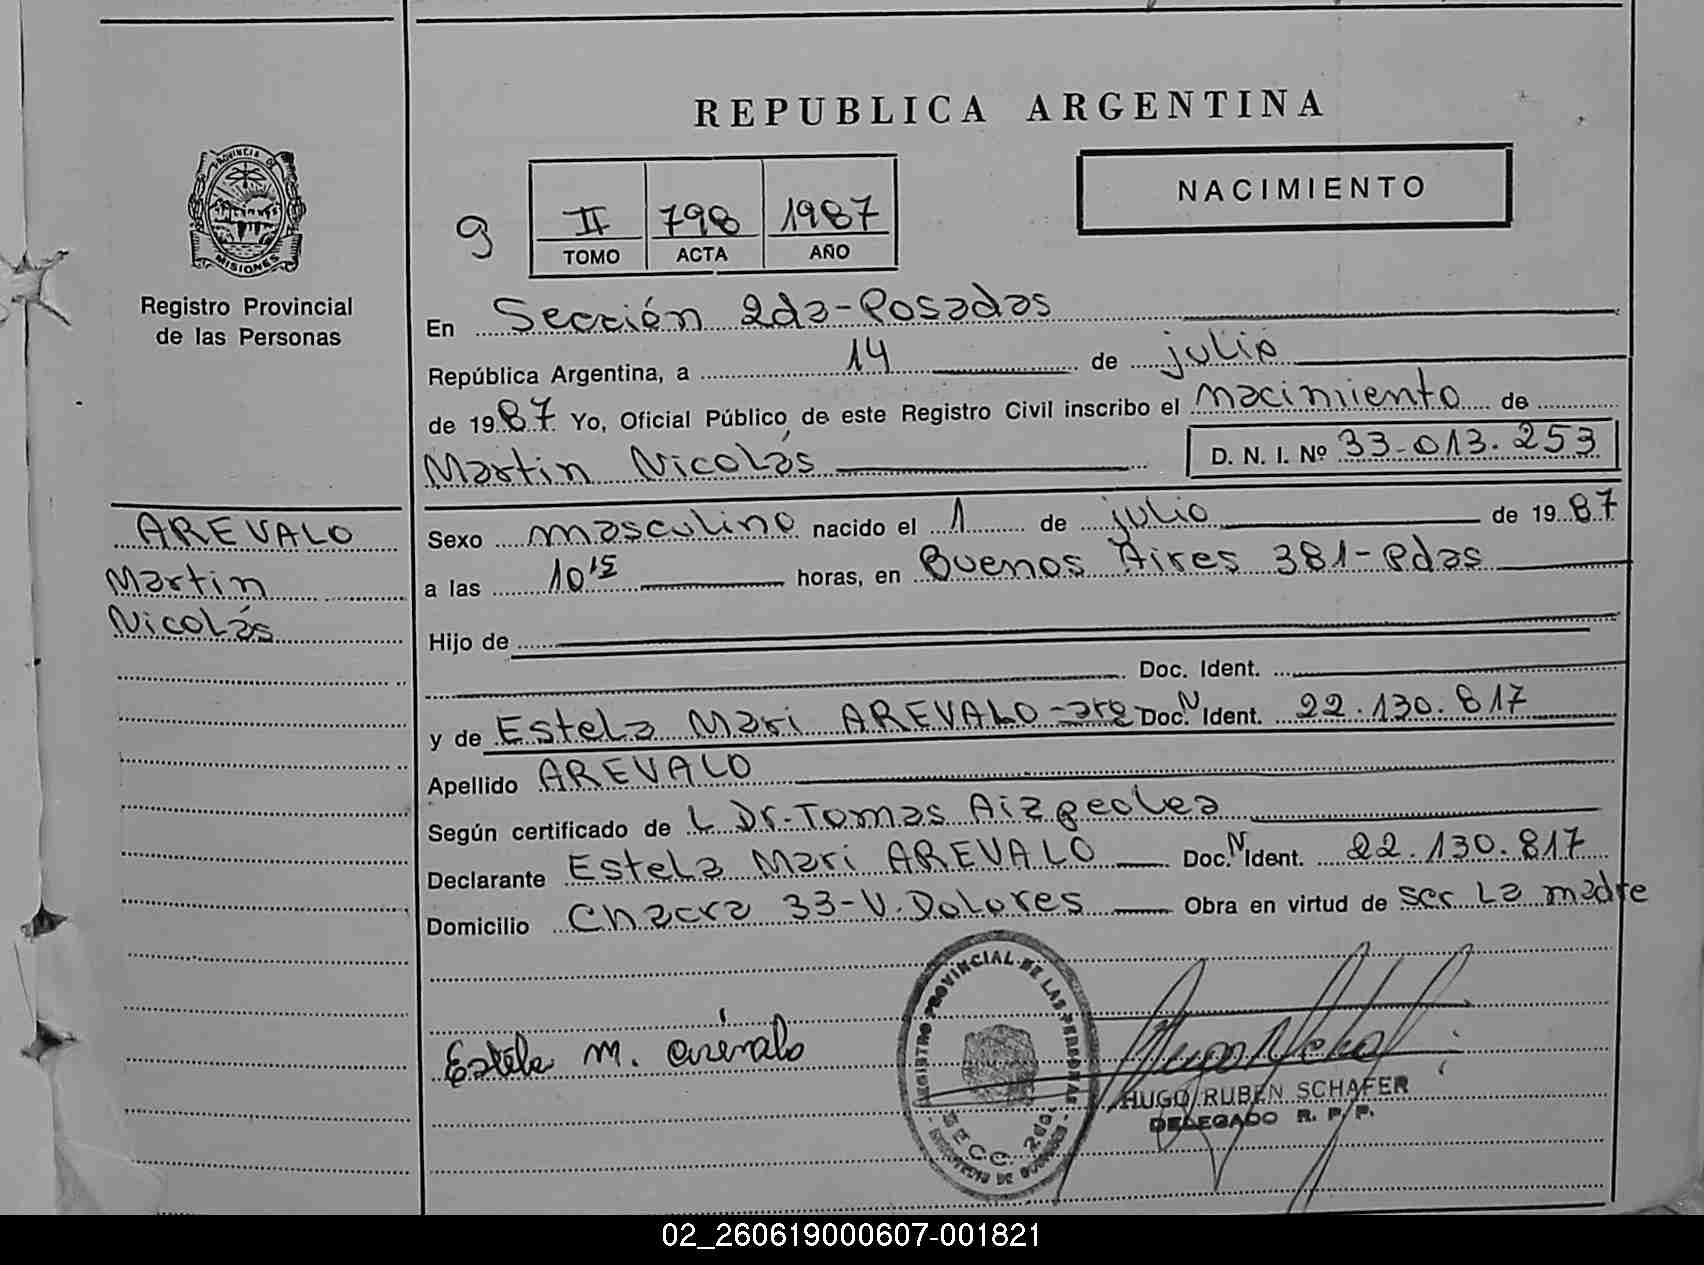 REPUBLICA ARGENTINA
PROVINCIA DE
MISIONES
Registro Provincial
de las Personas
NACIMIENTO
9 II 798 1987
TOMO ACTA AÑO
En Sección 2da-Posadas
República Argentina, a 14 de julio
de 1987 Yo, Oficial Público de este Registro Civil inscribo el nacimiento de
Martin Nicolás D. N. I. Nº 33.013.253
AREVALO
Martin
Nicolás
Sexo masculino nacido el 1 de julio de 1987
a las 10¹⁵ horas, en Buenos Aires 381-Pdas
Hijo de
Doc. Ident.
y de Estela Mari AREVALO-arg- Doc. N Ident. 22.130.817
Apellido AREVALO
Según certificado de L Dr. Tomas
Declarante Estela Mari AREVALO Doc. N Ident. 22.130.817
Domicilio Chacra 33-V. Dolores Obra en virtud de ser la madre
Estela M. Arévalo
REGISTRO PROVINCIAL DE LAS PERSONAS
SECC. 2da.
HUGO RUBEN SCHAFER
DELEGADO R. P. P.
02_260619000607-001821